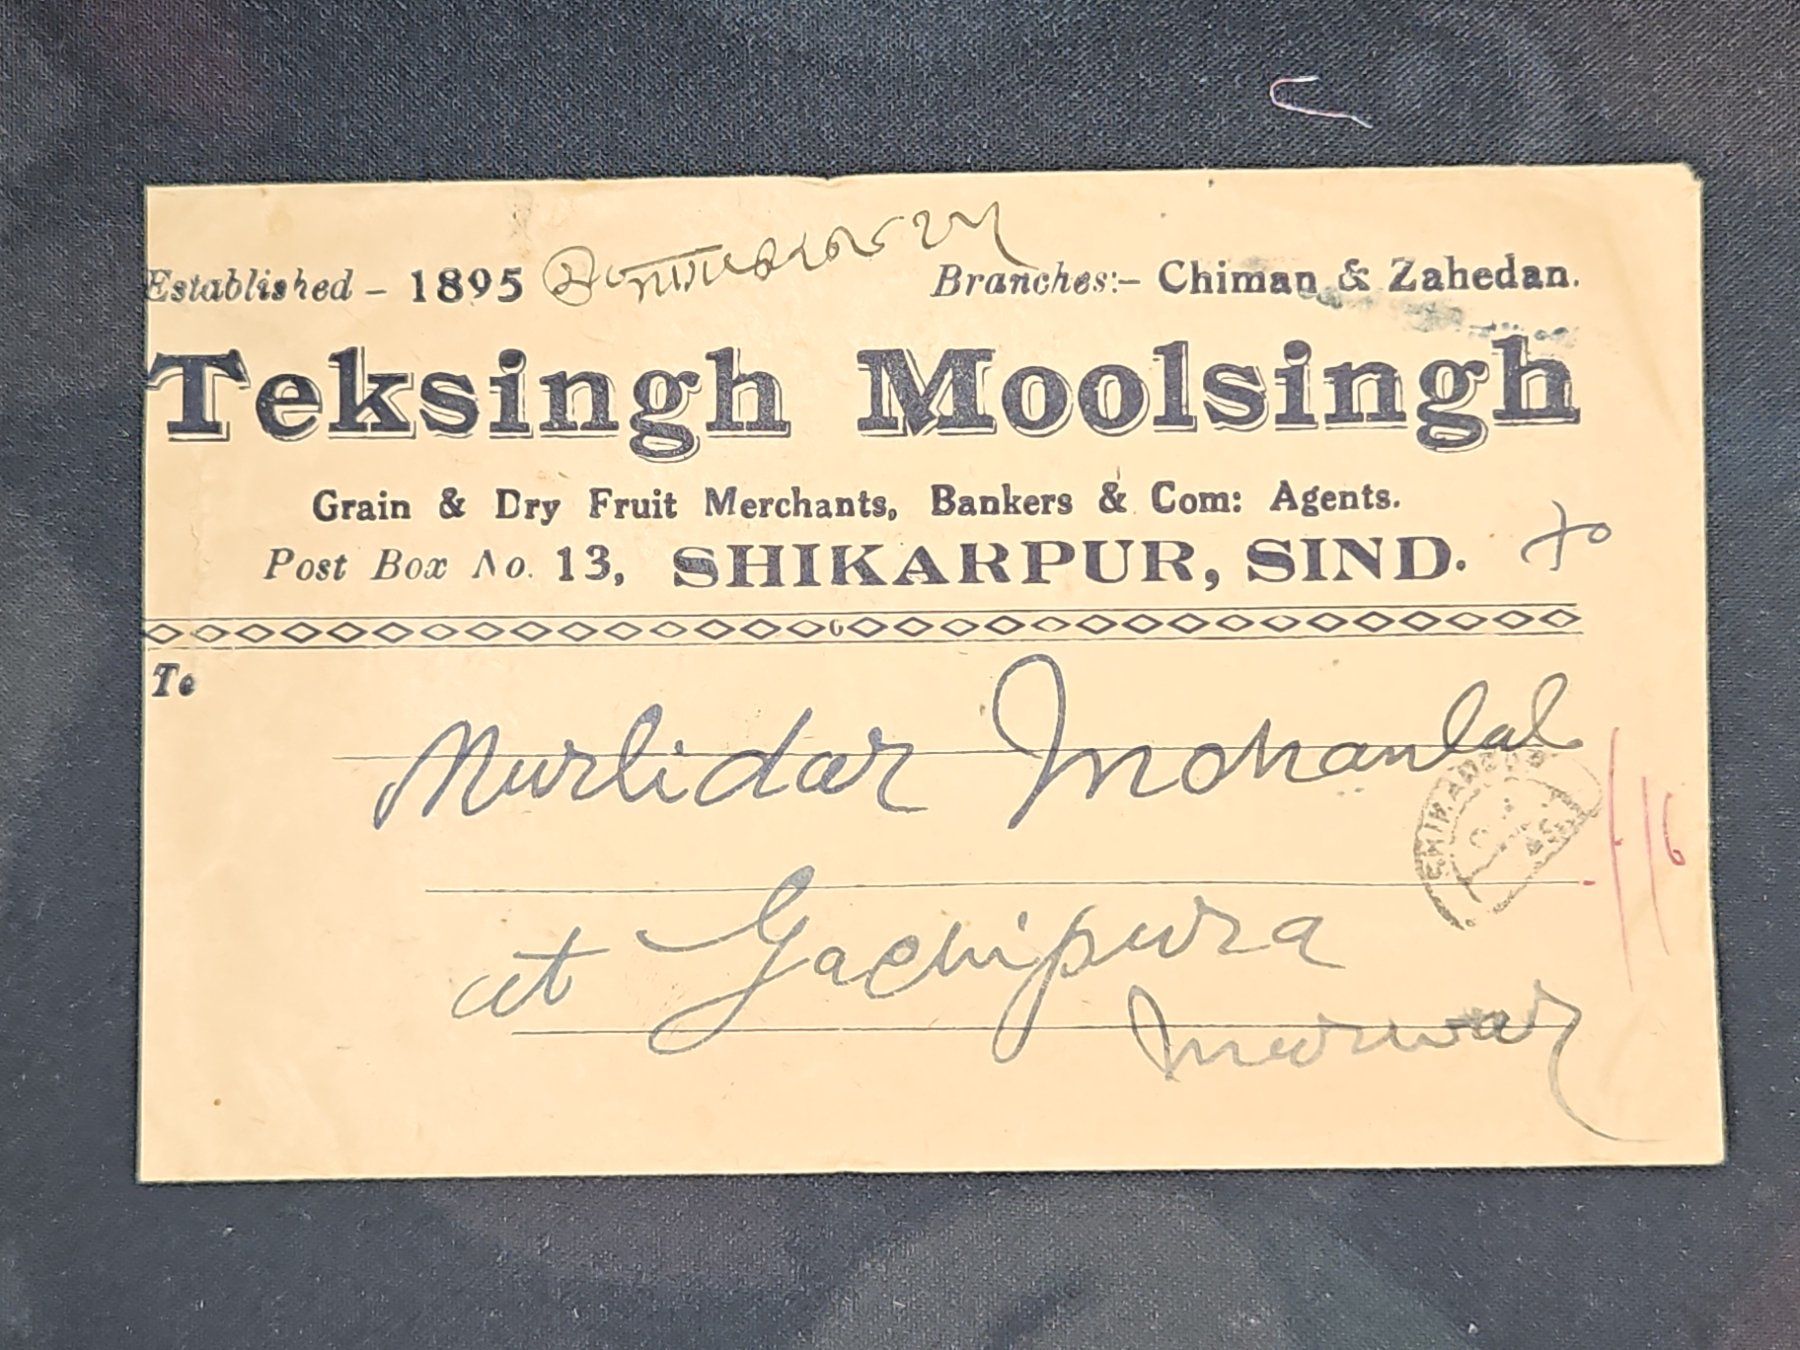 Established - 1895
Branches:- Chiman & Zahedan.
Teksingh Moolsingh
Grain & Dry Fruit Merchants, Bankers & Com: Agents.
Post Box No. 13, SHIKARPUR, SIND.
To
Murlidar Mohanlal
at Gachipura
Marwar